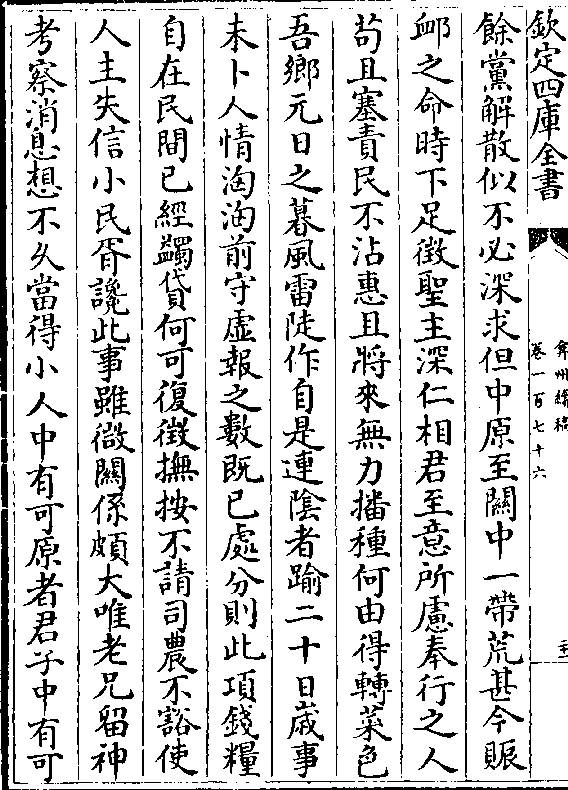 欽定四庫全書
弇州續稿
卷一百七十六
餘黨解散似不必深求但中原至關中一帶荒甚今賑
卹之命時下足徴聖主深仁相君至意所慮奉行之人
茍且塞責民不沾惠且將來無力播種何由得轉菜色
吾鄉元日之暮風雷陡作自是連陰者踰二十日嵗事
未卜人情洶洶前守虛報之數既已處分則此項錢糧
自在民間已經蠲貸何可復徴撫按不請司農不豁使
人主失信小民胥讒此事雖微關係頗大唯老兄留神
考察消息想不久當得小人中有可原者君子中有可